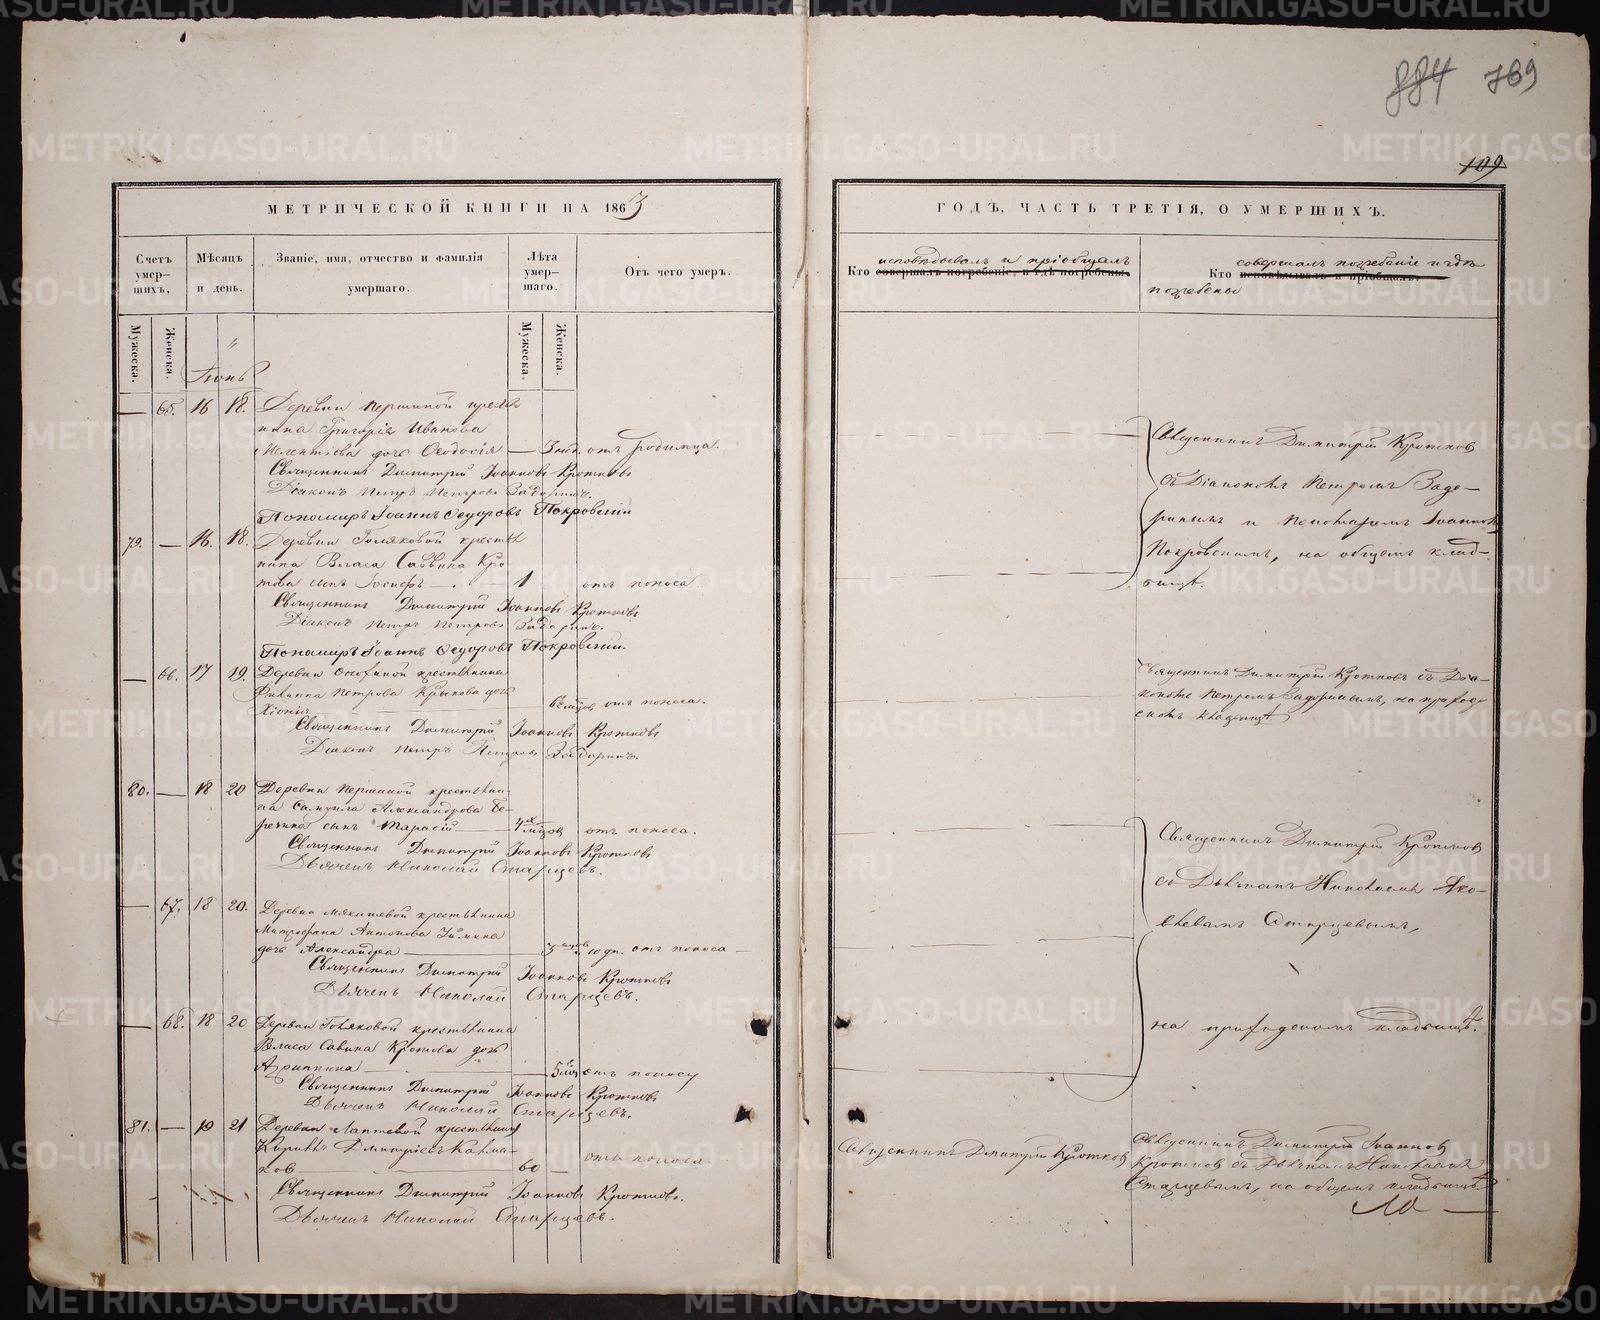 884 769
109
МЕТРИЧЕСКОЙ КНИГИ НА 1863
Счетъ умер-шихъ,
Мѣсяцъ и день.
Званіе, имя, отчество и фамилія умершаго.
Лѣта умер-шаго.
Отъ чего умеръ.
Мужеска.
Женска.
Мужеска.
Женска.
Іюнь
— 65. 16 18. Деревни Першиной кресть
нина Григорія Иванова
дочь Ѳеодосія — 3 нед. отъ родимца.
Священникъ Димитрій Іоанновъ Кротковъ
Діаконъ Петръ Петровъ Задоринъ.
Пономарь Іоаннъ Ѳедоровъ Покровскій
79. — 16. 18. Деревни Голяковой кресть
нина Власа Саввина Кро
това сынъ Іосифъ — 1 отъ поноса
Священникъ Димитрій Іоанновъ Кротковъ
Діаконъ Петръ Петровъ Задоринъ.
Пономарь Іоаннъ Ѳедоровъ Покровскій.
— 66. 17 19. Деревни крестьянина
Филиппа Петрова дочь
Хіонія — 6 мѣсцов отъ поноса.
Священникъ Димитрій Іоанновъ Кротковъ
Діаконъ Петръ Петровъ Задоринъ.
80. — 18 20 Деревни Першиной крестьяни-
на Самуила Александрова Бе-
сынъ Тарасій — 4х мѣсцов отъ поноса.
Священникъ Димитрій Іоанновъ Кротковъ
Дьячекъ Николай Старцевъ.
— 67. 18 20. Деревни Мякишевой крестьянина
Митрофана Антонова
дочь Александра — 10 дн. отъ поноса —
Священникъ Димитрій Іоанновъ Кротковъ
Дьячекъ Николай Старцевъ.
— 68. 18 20 Деревни Голяковой крестьянина
Власа Савина Кротова дочь
Агриппина — отъ поносу
Священникъ Димитрій Іоанновъ Кротковъ
Дьячекъ Николай Старцевъ.
81. — 19 21 Деревни Лаптевой крестьянинъ
Дмитріевъ Колма-
ковъ — 60 — отъ поноса
Священникъ Димитрій Іоанновъ Кротковъ.
Дьячекъ Николай Старцевъ.
ГОДЪ, ЧАСТЬ ТРЕТІЯ, О УМЕРШИХЪ.
исповѣдывалъ и пріобщалъ
Кто совершалъ погребеніе, и гдѣ погребены.
совершалъ погребеніе и гдѣ
Кто исповѣдывалъ и пріобщалъ.
погребены
Священникъ Димитрій Кротковъ
съ Діакономъ Петромъ Задо-
ринымъ и Пономаремъ Іоанномъ
Покровскимъ, на общемъ клад-
бищѣ.
Священникъ Димитрій Кротковъ съ Діа-
кономъ Петромъ Задоринымъ, на приход-
скомъ кладбищѣ
Священникъ Димитрій Кротковъ
съ Дьячкомъ Николаемъ Яко-
влевымъ Старцевымъ,
на приходскомъ кладбищѣ.
Священникъ Димитрій Кротковъ
Священникъ Димитрій Іоанновъ
Кротковъ съ Дьячкомъ Николаемъ
Старцевымъ, на общемъ кладбищѣ
METRIKI.GASO-URAL.RU